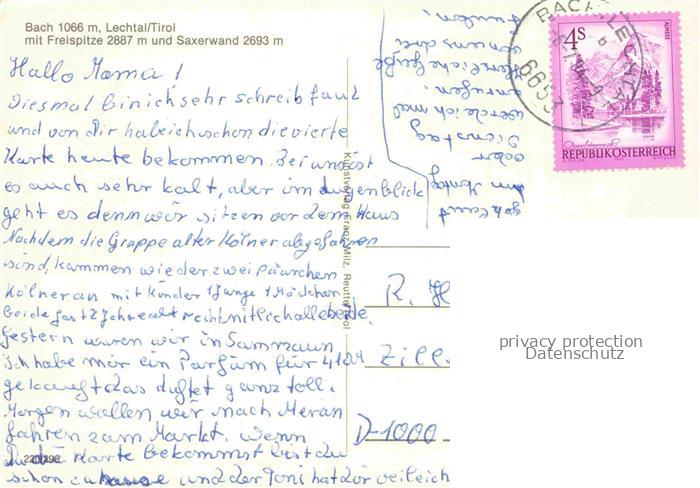 Bach 1066 m, Lechtal/Tirol
mit Freispitze 2887 m und Saxerwand 2693 m
Hallo Mama!
Diesmal bin ich sehr schreibfaul
und von dir habe ich schon die vierte
Karte heute bekommen. Bei uns ist
es auch sehr kalt, aber im Augenblick
geht es denn wir sitzen vor dem Haus
Nachdem die Gruppe alter Kölner abgefahren
sind, kammen wieder zwei päärchen
Kölner an mit Kinder 1 Junge 1 Mädchen
beide fast 2 Jahre alt recht niedlich alle beide.
Gestern waren wir in Samnaun
Ich habe mir ein Parfüm für 41 DM
gekauft das duftet ganz toll.
Morgen wollen wir nach Meran
fahren zum Markt. Wenn
Du die Karte bekommst bist du
schon zu hause und der Toni hat dir vielleich
geklaut
am Montag
oder
Dienstag
werde ich mal
anrufen.
Herzliche Grüße
von uns drei
Kunstverlag Franz Milz, Reutte/Tirol
220/296
R. H
Zill.
D-1000
BACH, LECHTAL
6653
4 S
REPUBLIK ÖSTERREICH
privacy protection
Datenschutz